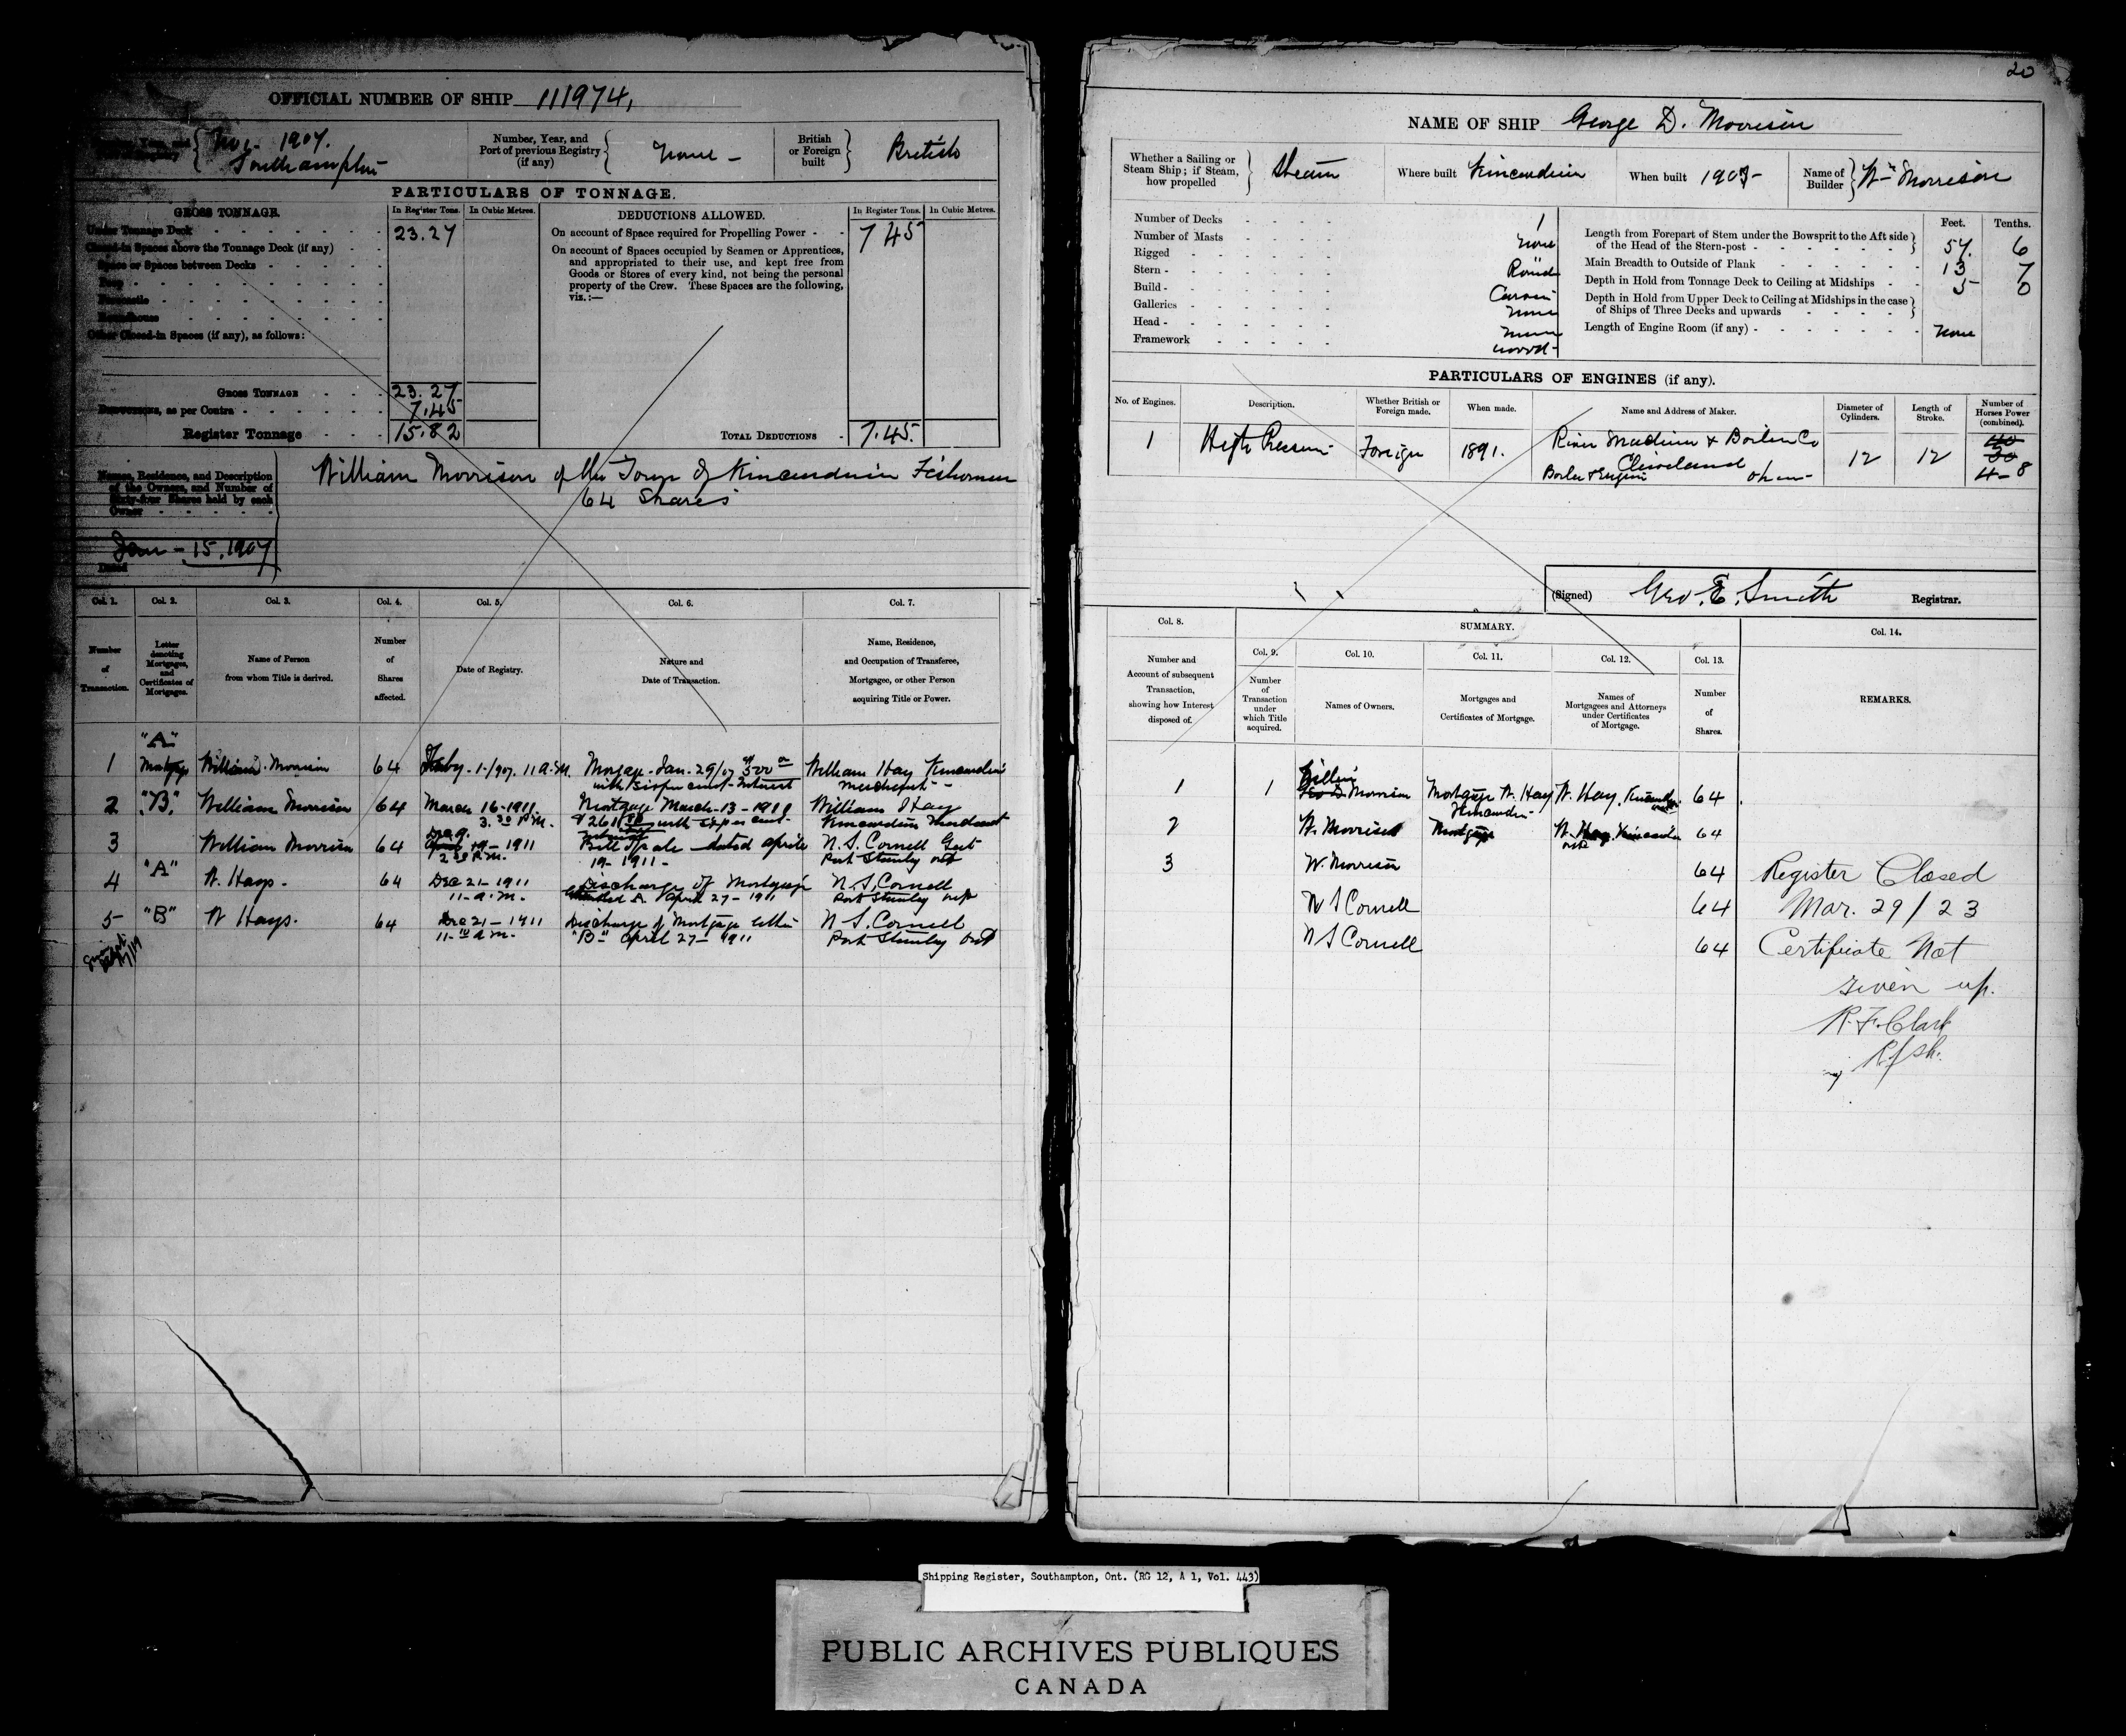 OFFICIAL NUMBER OF SHIP 111974,
1907.
Southampton
Number, Year, and Port of previous Registry (if any) None -
British or Foreign built British
PARTICULARS OF TONNAGE.
GROSS TONNAGE. In Register Tons. In Cubic Metres.
Under Tonnage Deck 23.27
Closed-in Spaces above the Tonnage Deck (if any)
Space or Spaces between Decks
Poop
Forecastle
Roundhouse
Other Closed-in Spaces (if any), as follows:
GROSS TONNAGE 23.27
Deductions, as per Contra 7.45
Register Tonnage 15.82
DEDUCTIONS ALLOWED. In Register Tons. In Cubic Metres.
On account of Space required for Propelling Power 7 45
On account of Spaces occupied by Seamen or Apprentices,
and appropriated to their use, and kept free from
Goods or Stores of every kind, not being the personal
property of the Crew. These Spaces are the following,
viz.:—
TOTAL DEDUCTIONS 7.45.
Names, Residence, and Description
of the Owners, and Number of
Sixty-four Shares held by each
Owner
William Morrison of the Town of Kincardine Fisherman
64 Shares
Jan - 15, 1907
Dated
Col. 1. Col. 2. Col. 3. Col. 4. Col. 5. Col. 6. Col. 7.
Number of Transaction.
Letter denoting Mortgages, and Certificates of Mortgages.
Name of Person from whom Title is derived.
Number of Shares affected.
Date of Registry.
Nature and Date of Transaction.
Name, Residence, and Occupation of Transferee, Mortgagee, or other Person acquiring Title or Power.
"A"
1 Mortgage William Morrison 64 Feby - 1-1907. 11 a.m. Jan. 29/07 500 William Hay Kincardine
Merchant -
2 "B" William Morrison 64 March 16-1911 Mortgage March-13-1911 William Hay
3.30 P.M. Kincardine Merchant
3 William Morrison 64 Dec 9. 1911 Bill of Sale dated April N. S. Cornell
2 P.M. 19-1911- Port Stanley Ont
4 "A" W. Hays. 64 Dec 21-1911 Discharge of Mortgage N. S. Cornell
11-a.m. A April 27-1911 Port Stanley Ont
5 "B" W Hays. 64 Dec 21-1911 Discharge of Mortgage N S. Cornell
11- a.m. "B" April 27-1911 Port Stanley Ont
20
NAME OF SHIP George D. Morrison
Whether a Sailing or Steam Ship; if Steam, how propelled Steam
Where built Kincardine
When built
Name of Builder Wm Morrison
Number of Decks 1
Number of Masts None
Rigged "
Stern Round
Build Carvel
Galleries None
Head None
Framework wood-
Feet. Tenths.
Length from Forepart of Stem under the Bowsprit to the Aft side
of the Head of the Stern-post 57. 6
Main Breadth to Outside of Plank 13 7
Depth in Hold from Tonnage Deck to Ceiling at Midships 5 0
Depth in Hold from Upper Deck to Ceiling at Midships in the case
of Ships of Three Decks and upwards
Length of Engine Room (if any) None
PARTICULARS OF ENGINES (if any).
No. of Engines. Description. Whether British or Foreign made. When made. Name and Address of Maker. Diameter of Cylinders. Length of Stroke. Number of Horses Power (combined).
1 High Pressure Foreign 1891. River Machine & Boiler Co 12 12 40
Cleveland 30
Boiler & Engine Ohio 4-8
(Signed) Geo. E. Smith Registrar.
Col. 8. SUMMARY. Col. 14.
Col. 9. Col. 10. Col. 11. Col. 12. Col. 13.
Number and Account of subsequent Transaction, showing how Interest disposed of.
Number of Transaction under which Title acquired.
Names of Owners.
Mortgages and Certificates of Mortgage.
Names of Mortgagees and Attorneys under Certificates of Mortgage.
Number of Shares.
REMARKS.
William
1 1 Geo D Morrison Mortgage W. Hay W. Hay, Kincardine 64
Kincardine
2 W. Morrison Mortgage W. Hay Kincardine 64
Ont
3 W. Morrison 64
N S Cornell 64
N S Cornell 64
Register Closed
Mar. 29/23
Certificate Not
given up.
R. F. Clark
Shipping Register, Southampton, Ont. (RG 12, A 1, Vol. 443)
PUBLIC ARCHIVES PUBLIQUES
CANADA